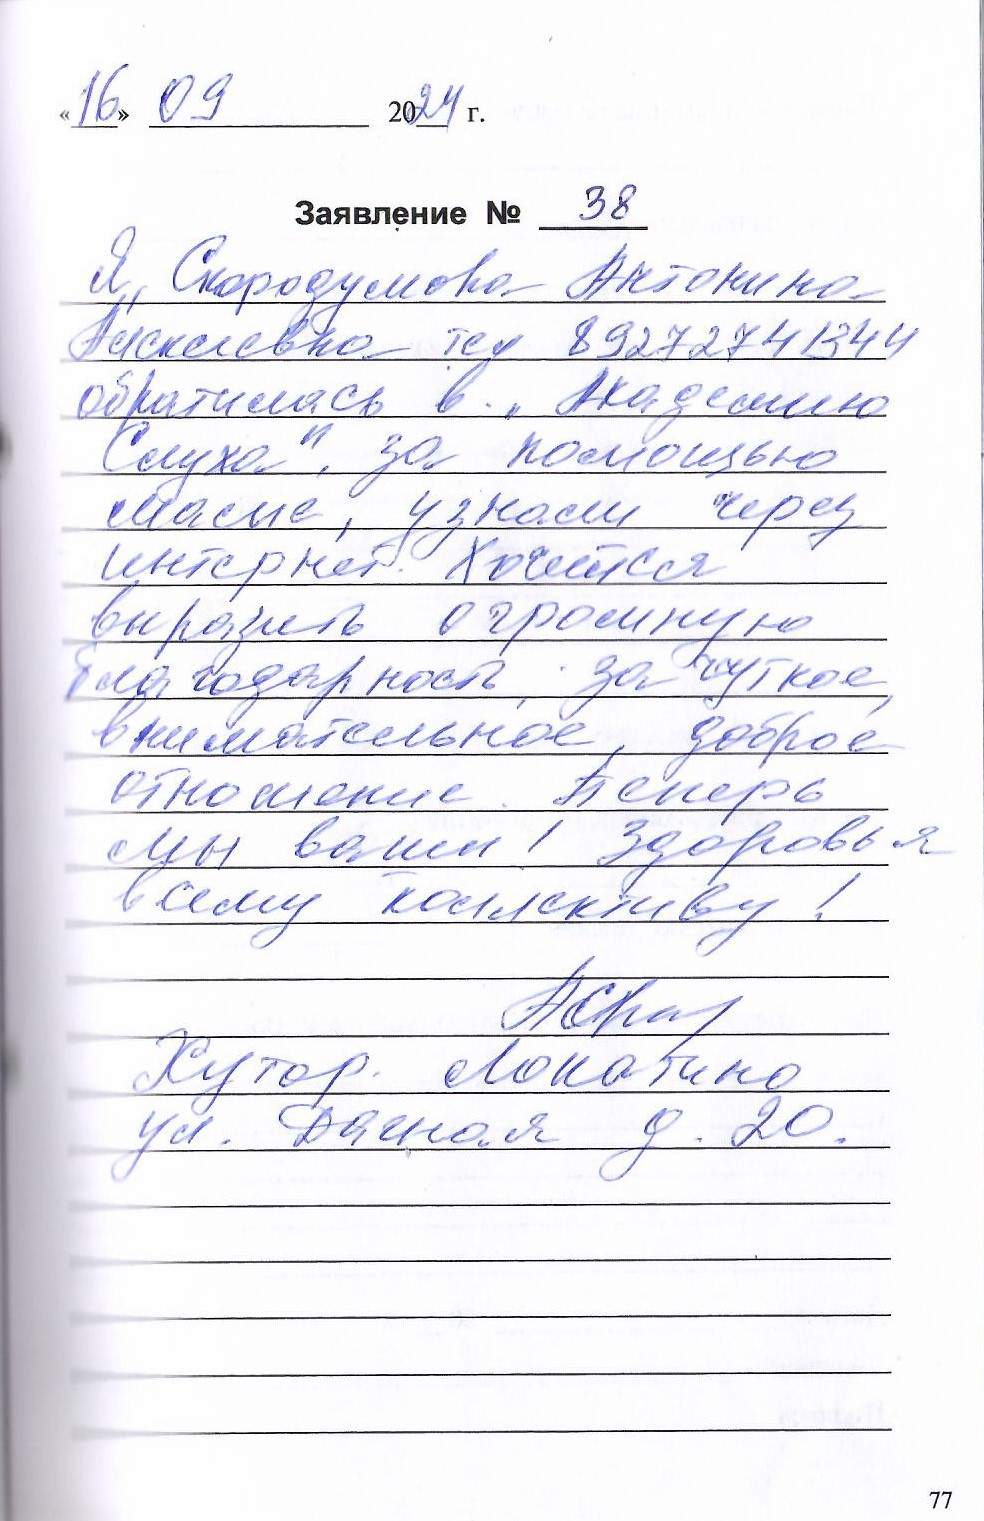 «16» 09 2024 г.
Заявление № 38
Я, Скородумова Антонина
Алексеевна тел 89272741344
обратилась в „Академию
Слуха", за помощью
маме, узнали через
интернет. Хочется
выразить огромную
благодарность, за чуткое,
внимательное, доброе
отношение. Теперь
мы ваши! Здоровья
всему коллективу!
Хутор. Лопатино
ул. Дачная д. 20.
77